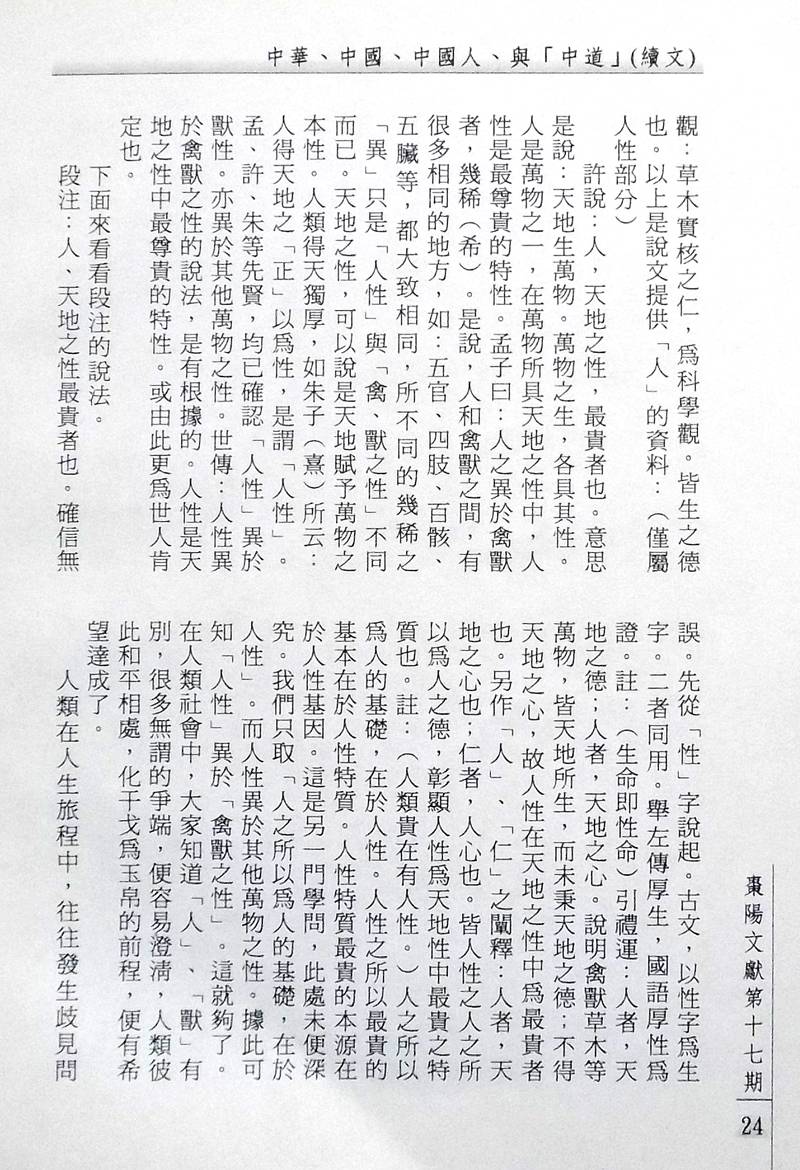 中華、中國、中國人、與「中道」(續文)
觀：草木實核之仁，為科學觀。皆生之德
也。以上是說文提供「人」的資料：（僅屬
人性部分）
許說：人，天地之性，最貴者也。意思
是說：天地生萬物。萬物之生，各具其性。
人是萬物之一，在萬物所具天地之性中，人
性是最尊貴的特性。孟子曰：人之異於禽獸
者，幾稀（希）。是說，人和禽獸之間，有
很多相同的地方，如：五官、四肢、百骸、
五臟等，都大致相同，所不同的幾稀之
「異」只是「人性」與「禽、獸之性」不同
而已。天地之性，可以說是天地賦予萬物之
本性。人類得天獨厚，如朱子（熹）所云：
人得天地之「正」以為性，是謂「人性」。
孟、許、朱等先賢，均已確認「人性」異於
獸性。亦異於其他萬物之性。世傳：人性異
於禽獸之性的說法，是有根據的。人性是天
地之性中最尊貴的特性。或由此更為世人肯
定也。
下面來看看段注的說法。
段注：人、天地之性最貴者也。確信無
誤。先從「性」字說起。古文，以性字為生
字。二者同用。舉左傳厚生，國語厚性為
證。註：（生命即性命）引禮運：人者，天
地之德；人者，天地之心。說明禽獸草木等
萬物，皆天地所生，而未秉天地之德；不得
天地之心，故人性在天地之性中為最貴者
也。另作「人」、「仁」之闡釋：人者，天
地之心也；仁者，人心也。皆人性之人之所
以為人之德，彰顯人性為天地性中最貴之特
質也。註：（人類貴在有人性。）人之所以
為人的基礎，在於人性。人性之所以最貴的
基本在於人性特質。人性特質最貴的本源在
於人性基因。這是另一門學問，此處未便深
究。我們只取「人之所以為人的基礎，在於
人性」。而人性異於其他萬物之性。據此可
知「人性」異於「禽獸之性」。這就夠了。
在人類社會中，大家知道「人」、「獸」有
別，很多無謂的爭端，便容易澄清，人類彼
此和平相處，化干戈為玉帛的前程，便有希
望達成了。
人類在人生旅程中，往往發生歧見問
棗陽文獻第十七期
24